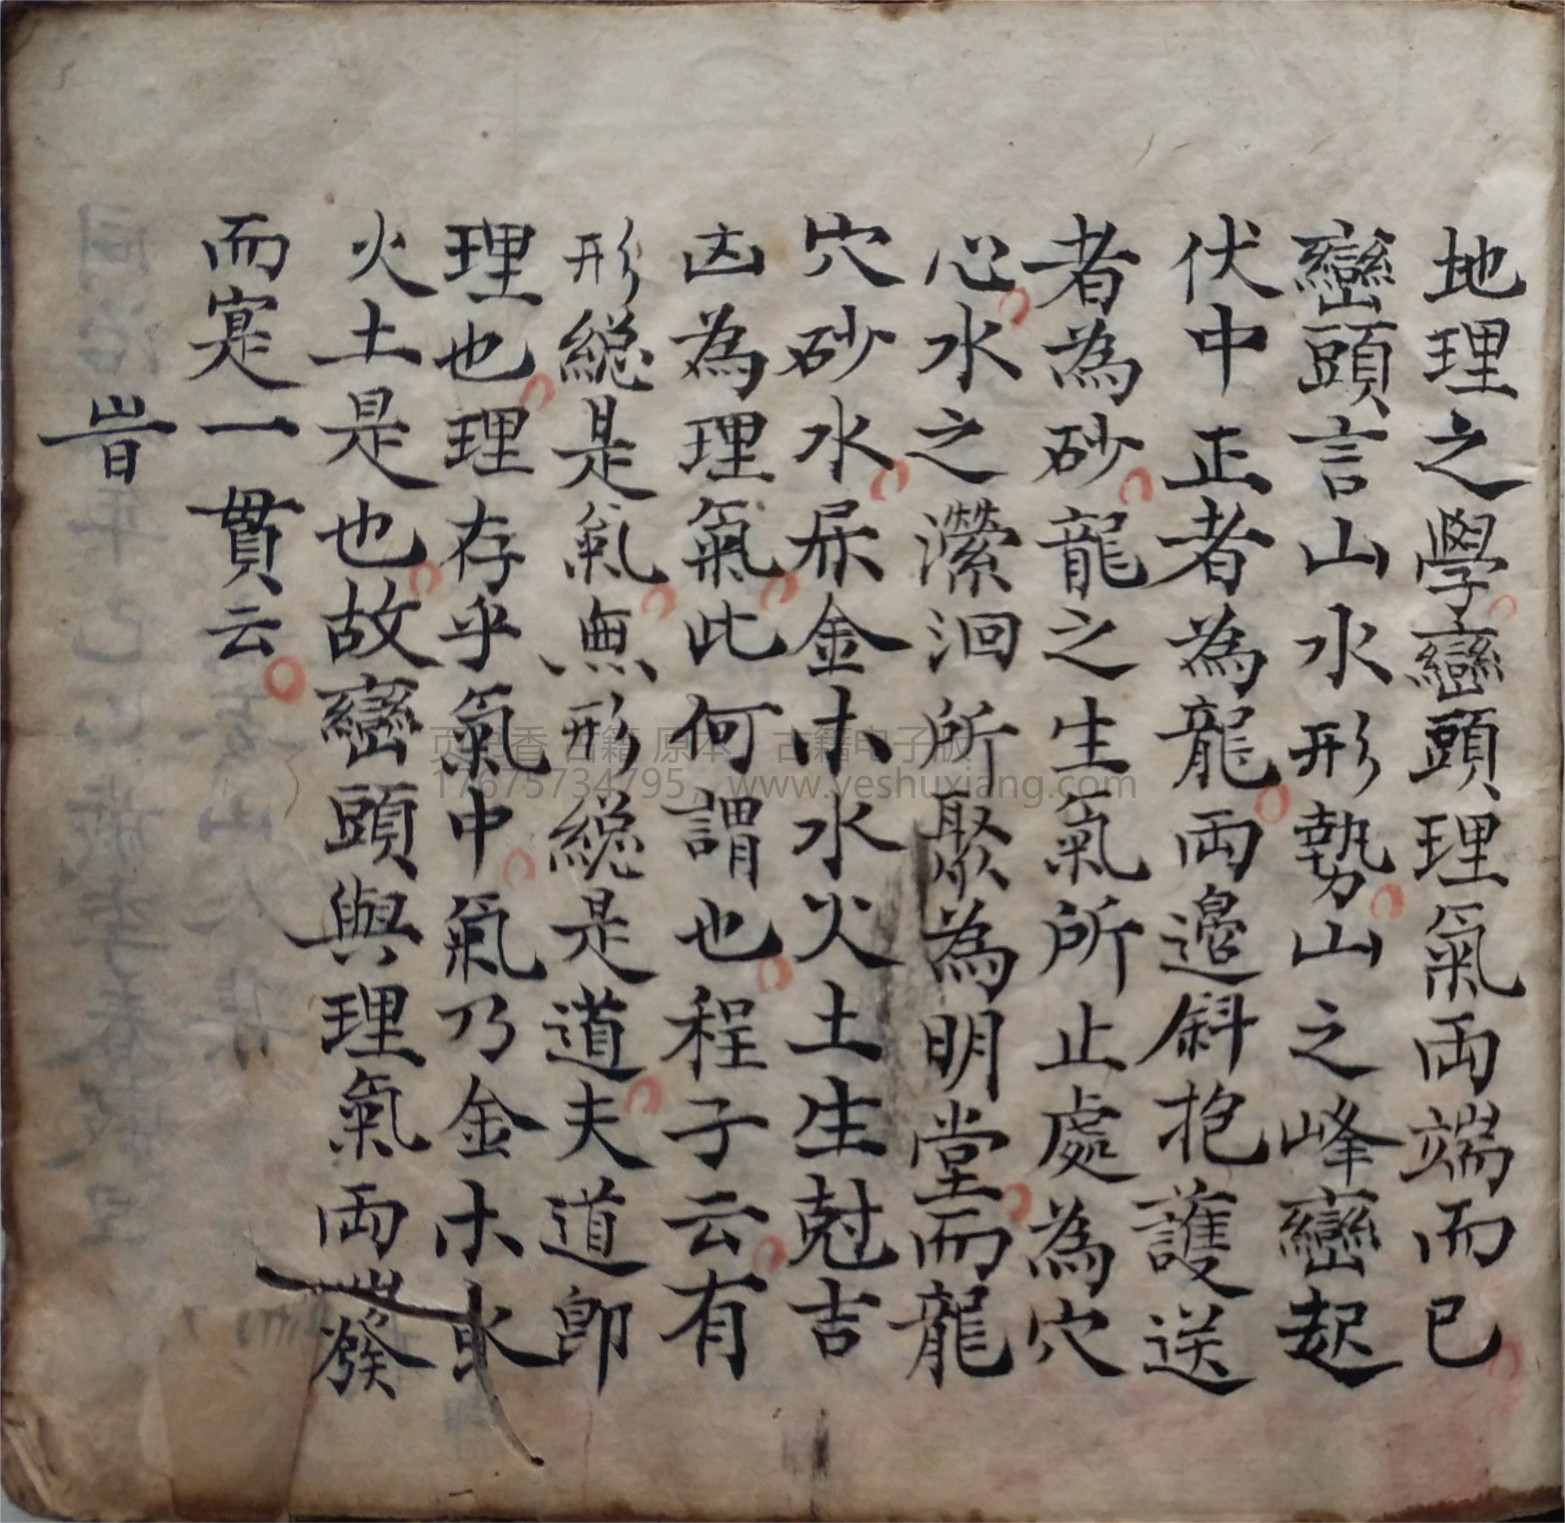 地理之學巒頭理氣両端而已
巒頭言山水形勢山之峰巒起
伏中正者為龍両邉斜抱護送
者為砂龍之生氣所止處為穴
心水之瀠洄所聚為明堂而龍
穴砂水屛金木水火土生尅吉
凶為理氣此何謂也程子云有
形總是氣無形總是道夫道即
理也理存乎氣中氣乃金木水
火土是也故巒頭與理氣両發
而寔一貫云
旹
页书香 古籍 原本 古籍电子版
17675734795 www.yeshuxiang.com